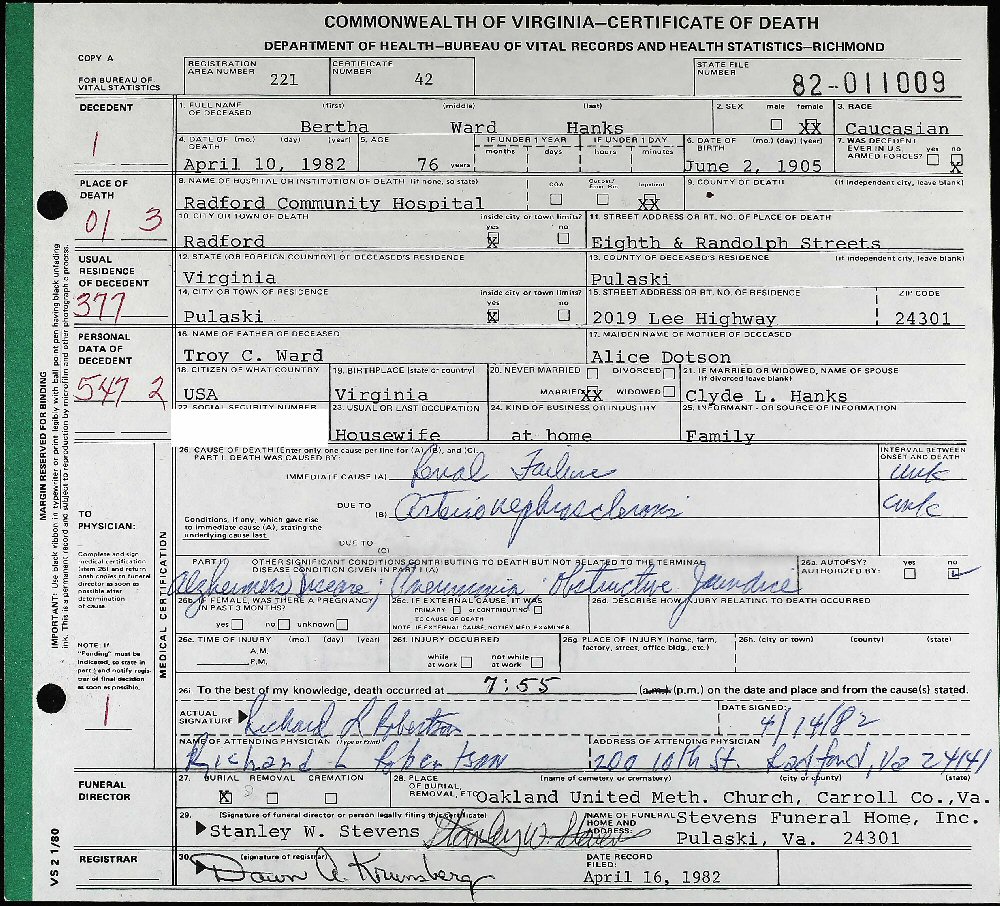 COMMONWEALTH OF VIRGINIA—CERTIFICATE OF DEATH
DEPARTMENT OF HEALTH—BUREAU OF VITAL RECORDS AND HEALTH STATISTICS—RICHMOND
COPY A
FOR BUREAU OF VITAL STATISTICS
REGISTRATION AREA NUMBER 221
CERTIFICATE NUMBER 42
STATE FILE NUMBER 82-011009
DECEDENT
1
1. FULL NAME OF DECEASED (first) (middle) (last)
Bertha Ward Hanks
2. SEX male female XX
3. RACE
Caucasian
4. DATE OF DEATH (mo.) (day) (year)
April 10, 1982
5. AGE
76 years
IF UNDER 1 YEAR
months days
IF UNDER 1 DAY
hours minutes
6. DATE OF BIRTH (mo.) (day) (year)
June 2, 1905
7. WAS DECEDENT EVER IN U.S. ARMED FORCES? yes no X
PLACE OF DEATH
01 3
8. NAME OF HOSPITAL OR INSTITUTION OF DEATH (if none, so state)
Radford Community Hospital
DOA Inpatient XX
9. COUNTY OF DEATH (if independent city, leave blank)
10. CITY OR TOWN OF DEATH inside city or town limits? yes no
Radford X
11. STREET ADDRESS OR RT. NO. OF PLACE OF DEATH
Eighth & Randolph Streets
USUAL RESIDENCE OF DECEDENT
377
12. STATE (OR FOREIGN COUNTRY) OF DECEASED'S RESIDENCE
Virginia
13. COUNTY OF DECEASED'S RESIDENCE (if independent city, leave blank)
Pulaski
14. CITY OR TOWN OF RESIDENCE inside city or town limits? yes no
Pulaski X
15. STREET ADDRESS OR RT. NO. OF RESIDENCE ZIP CODE
2019 Lee Highway 24301
PERSONAL DATA OF DECEDENT
547 2
16. NAME OF FATHER OF DECEASED
Troy C. Ward
17. MAIDEN NAME OF MOTHER OF DECEASED
Alice Dotson
18. CITIZEN OF WHAT COUNTRY
USA
19. BIRTHPLACE (state or country)
Virginia
20. NEVER MARRIED DIVORCED
MARRIED XX WIDOWED
21. IF MARRIED OR WIDOWED, NAME OF SPOUSE
(if divorced leave blank)
Clyde L. Hanks
22. SOCIAL SECURITY NUMBER
23. USUAL OR LAST OCCUPATION
Housewife
24. KIND OF BUSINESS OR INDUSTRY
at home
25. INFORMANT - OR SOURCE OF INFORMATION
Family
MARGIN RESERVED FOR BINDING
IMPORTANT: Use black ribbon in typewriter or print legibly with ball point pen having black unfading
ink. This is a permanent record and subject to reproduction by microfilm and other photographic process.
TO PHYSICIAN:
Complete and sign
medical certification
(item 26) and return
both copies to funeral
director as soon as
possible after
determination
of cause
NOTE: If
"Pending" must be
indicated, so state in
part I and notify regis-
trar of final decision
as soon as possible.
1
MEDICAL CERTIFICATION
26. CAUSE OF DEATH (Enter only one cause per line for (A), (B), and (C).
PART I. DEATH WAS CAUSED BY:
INTERVAL BETWEEN ONSET AND DEATH
IMMEDIATE CAUSE (A) Renal Failure unk
DUE TO (B) Arterionephrosclerosis unk
Conditions, if any, which gave rise
to immediate cause (A), stating the
underlying cause last.
DUE TO (C)
PART II. OTHER SIGNIFICANT CONDITIONS CONTRIBUTING TO DEATH BUT NOT RELATED TO THE TERMINAL
DISEASE CONDITION GIVEN IN PART I (A)
Alzheimers Disease; Pneumonia Obstructive Jaundice
26a. AUTOPSY? yes no
AUTHORIZED BY:
26b. IF FEMALE, WAS THERE A PREGNANCY IN PAST 3 MONTHS?
yes no unknown
26c. IF EXTERNAL CAUSE, IT WAS
PRIMARY or CONTRIBUTING
TO CAUSE OF DEATH
NOTE: IF EXTERNAL CAUSE, NOTIFY MED. EXAMINER
26d. DESCRIBE HOW INJURY RELATING TO DEATH OCCURRED
26e. TIME OF INJURY (mo.) (day) (year)
A.M.
P.M.
26f. INJURY OCCURRED
while at work not while at work
26g. PLACE OF INJURY (home, farm, factory, street, office bldg., etc.)
26h. (city or town) (county) (state)
26i. To the best of my knowledge, death occurred at 7:55 (a.m.) (p.m.) on the date and place and from the cause(s) stated.
ACTUAL SIGNATURE Richard L Robertson
DATE SIGNED: 4/14/82
NAME OF ATTENDING PHYSICIAN (Type or Print)
Richard L Robertson
ADDRESS OF ATTENDING PHYSICIAN
1200 10th St. Radford, Va 24141
FUNERAL DIRECTOR
27. BURIAL REMOVAL CREMATION
X
28. PLACE OF BURIAL, REMOVAL, ETC. (name of cemetery or crematory) (city or county) (state)
Oakland United Meth. Church, Carroll Co., Va.
29. (Signature of funeral director or person legally filing this certificate)
Stanley W. Stevens Stanley W. Stevens
NAME OF FUNERAL HOME AND ADDRESS:
Stevens Funeral Home, Inc.
Pulaski, Va. 24301
REGISTRAR
30. (signature of registrar)
Dawn A Krumsberg
DATE RECORD FILED:
April 16, 1982
VS 2 1/80